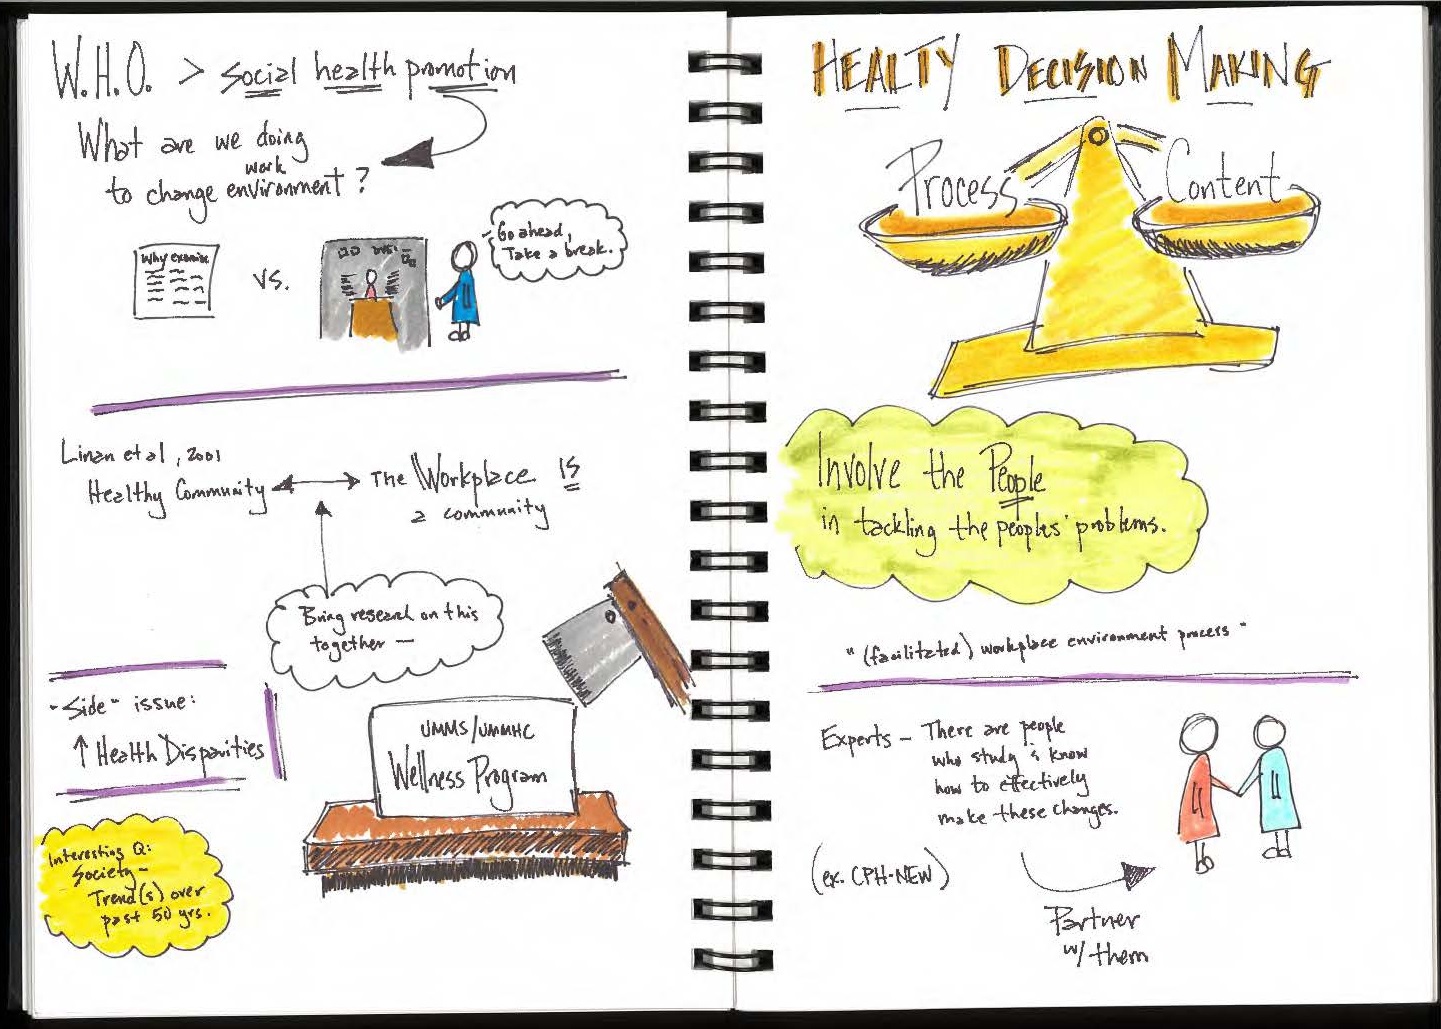 W.H.O. > social health promotion
What are we doing
work
to change environment?
Why exercise
vs.
Go ahead,
Take a break.
Linan et al, 2001
Healthy Community
The Workplace IS
a community
Bring research on this
together —
"Side" issue:
↑ Health Disparities
UMMS/UMMHC
Wellness Program
Interesting Q:
Society —
Trend(s) over
past 50 yrs.
HEALTY DECISION MAKING
Process
Content
Involve the People
in tackling the peoples' problems.
"(facilitated) workplace environment process"
Experts — There are people
who study & know
how to effectively
make these changes.
(ex. CPH-NEW)
Partner
w/ them